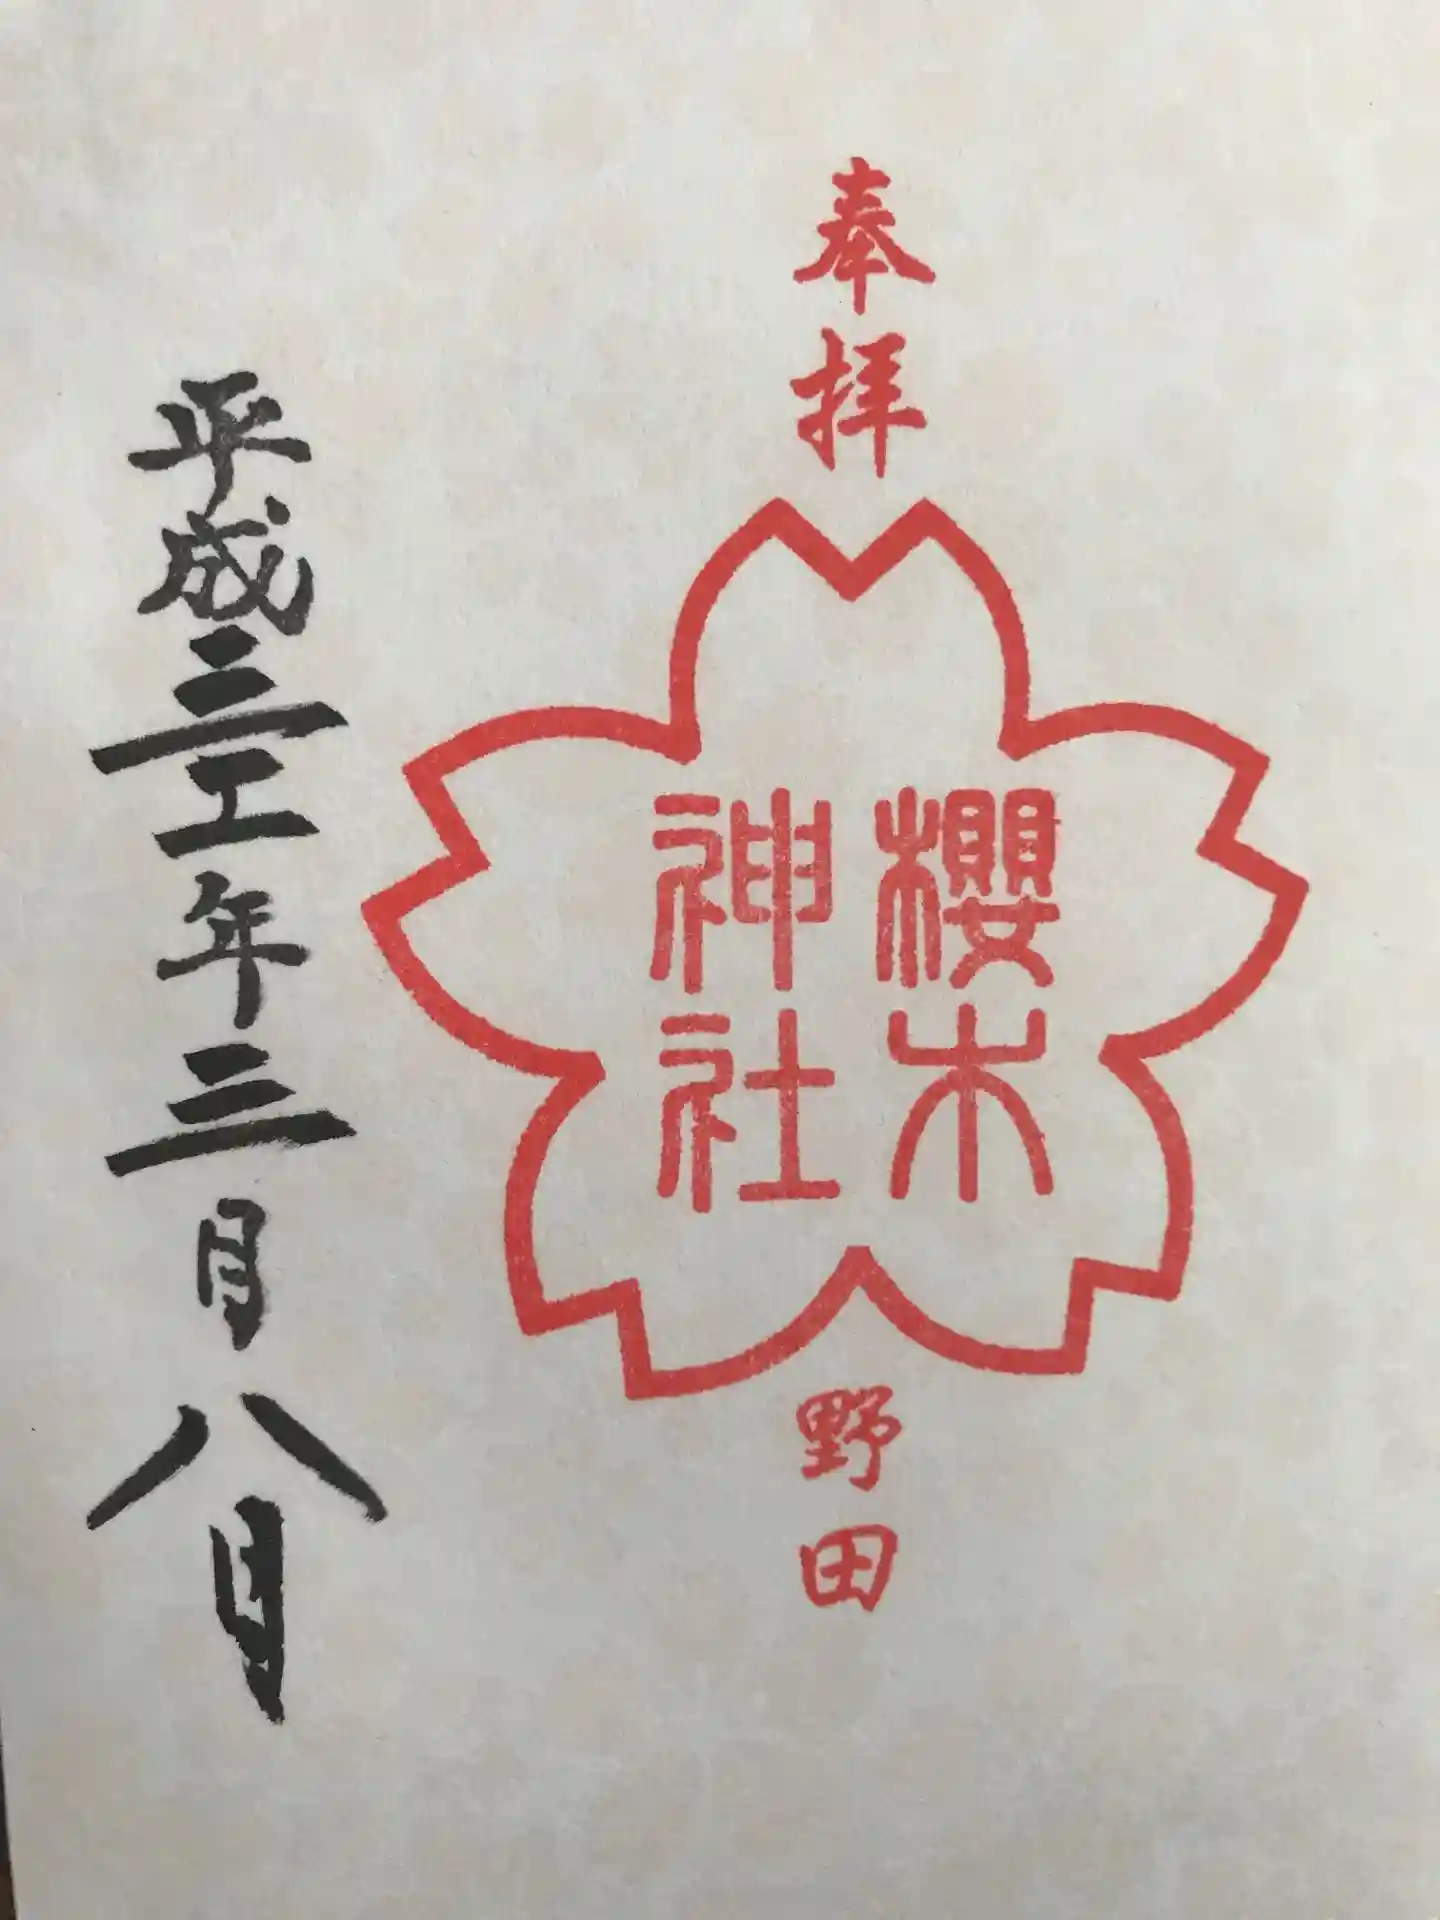 奉拝
櫻木
神社
野田
平成三十一年三月八日